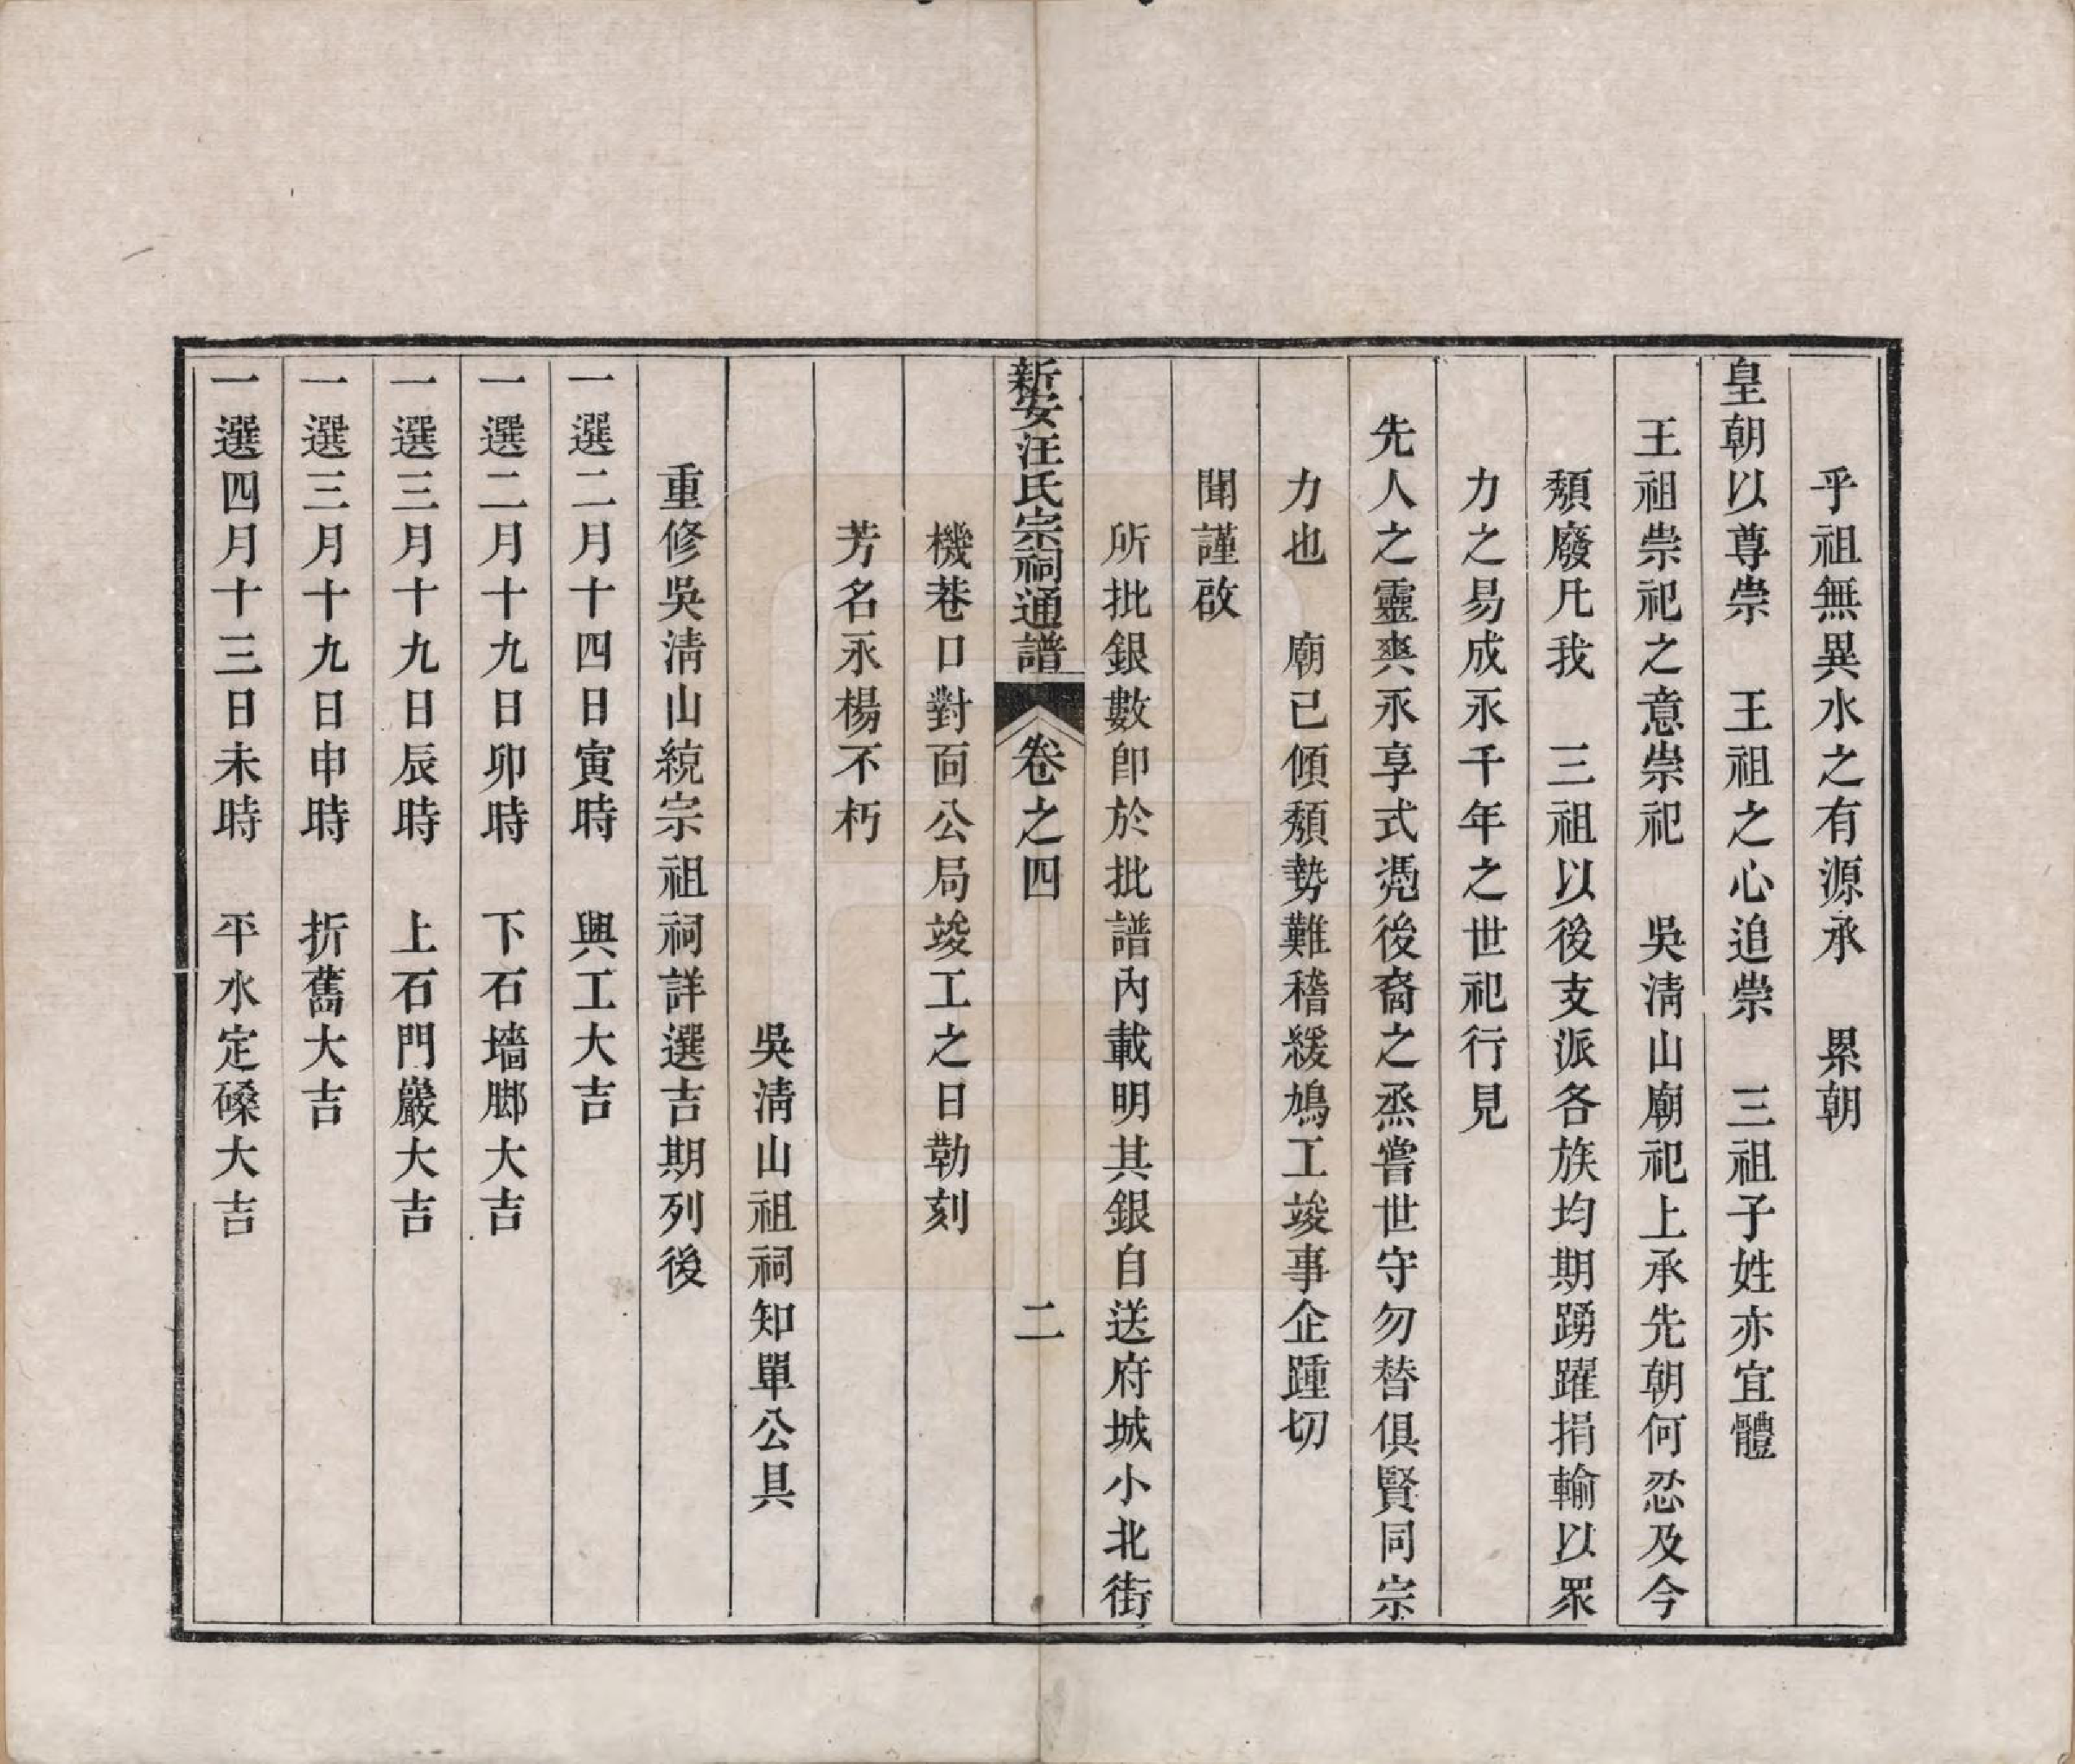 乎祖無異水之有源承　累朝
皇朝以尊崇　王祖之心追崇　三祖子姓亦宜體
王祖崇祀之意崇祀　吳清山廟祀上承先朝何忍及今
頽廢凡我　三祖以後支派各族均期踴躍捐輸以眾
力之易成永千年之世祀行見
先人之靈爽永享式憑後裔之烝嘗世守勿替俱賢同宗
力也　廟已傾頽勢難稽緩鳩工竣事企踵切
聞謹啟
所批銀數卽於批譜內載明其銀自送府城小北街
新安汪氏宗祠通譜　卷之四　二
機巷口對面公局竣工之日勒刻
芳名永楊不朽
吳清山祖祠知單公具
重修吳清山統宗祖祠詳選吉期列後
一選二月十四日寅時　興工大吉
一選二月十九日卯時　下石墻腳大吉
一選三月十九日辰時　上石門巖大吉
一選三月十九日申時　折舊大吉
一選四月十三日未時　平水定磉大吉